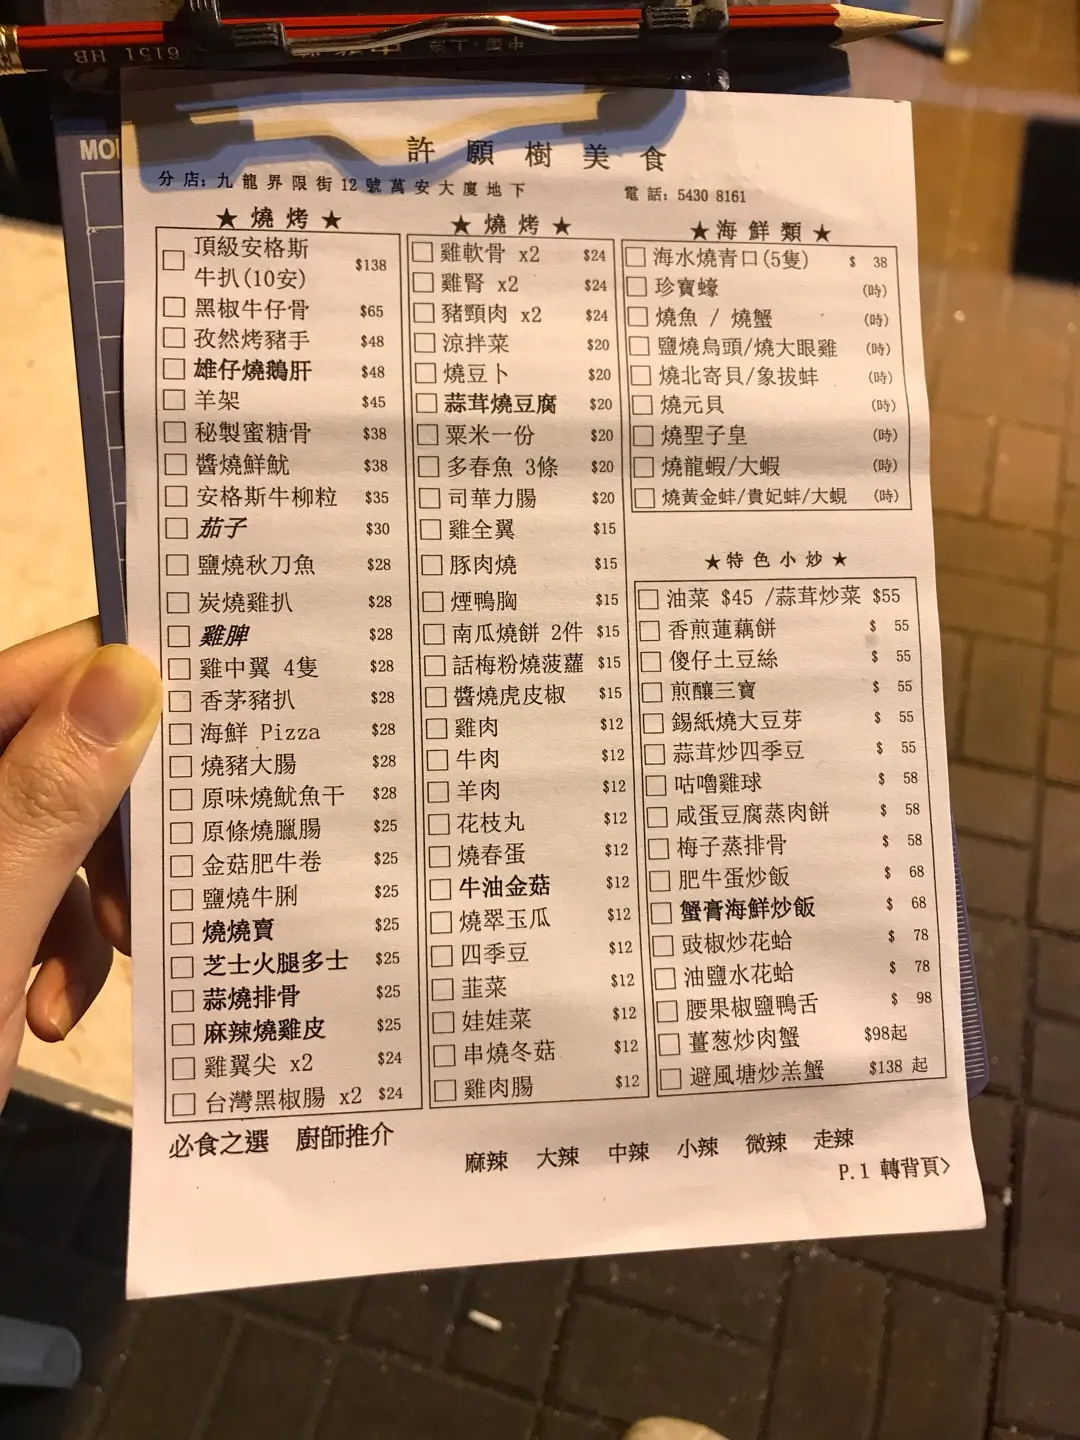 6151 HB
中国·上海
MO
許願樹美食
分店：九龍界限街12號萬安大廈地下 電話：5430 8161
★燒烤★
頂級安格斯
牛扒(10安) $138
黑椒牛仔骨 $65
孜然烤豬手 $48
雄仔燒鵝肝 $48
羊架 $45
秘製蜜糖骨 $38
醬燒鮮魷 $38
安格斯牛柳粒 $35
茄子 $30
鹽燒秋刀魚 $28
炭燒雞扒 $28
雞脾 $28
雞中翼 4隻 $28
香茅豬扒 $28
海鮮 Pizza $28
燒豬大腸 $28
原味燒魷魚干 $28
原條燒臘腸 $25
金菇肥牛卷 $25
鹽燒牛脷 $25
燒燒賣 $25
芝士火腿多士 $25
蒜燒排骨 $25
麻辣燒雞皮 $25
雞翼尖 x2 $24
台灣黑椒腸 x2 $24
★燒烤★
雞軟骨 x2 $24
雞腎 x2 $24
豬頸肉 x2 $24
涼拌菜 $20
燒豆卜 $20
蒜茸燒豆腐 $20
粟米一份 $20
多春魚 3條 $20
司華力腸 $20
雞全翼 $15
豚肉燒 $15
煙鴨胸 $15
南瓜燒餅 2件 $15
話梅粉燒菠蘿 $15
醬燒虎皮椒 $15
雞肉 $12
牛肉 $12
羊肉 $12
花枝丸 $12
燒春蛋 $12
牛油金菇 $12
燒翠玉瓜 $12
四季豆 $12
韭菜 $12
娃娃菜 $12
串燒冬菇 $12
雞肉腸 $12
★海鮮類★
海水燒青口(5隻) $ 38
珍寶蠔 (時)
燒魚 / 燒蟹 (時)
鹽燒烏頭/燒大眼雞 (時)
燒北寄貝/象拔蚌 (時)
燒元貝 (時)
燒聖子皇 (時)
燒龍蝦/大蝦 (時)
燒黃金蚌/貴妃蚌/大蜆 (時)
★特色小炒★
油菜 $45 /蒜茸炒菜 $55
香煎蓮藕餅 $ 55
傻仔土豆絲 $ 55
煎釀三寶 $ 55
錫紙燒大豆芽 $ 55
蒜茸炒四季豆 $ 55
咕嚕雞球 $ 58
咸蛋豆腐蒸肉餅 $ 58
梅子蒸排骨 $ 58
肥牛蛋炒飯 $ 68
蟹膏海鮮炒飯 $ 68
豉椒炒花蛤 $ 78
油鹽水花蛤 $ 78
腰果椒鹽鴨舌 $ 98
薑葱炒肉蟹 $98起
避風塘炒羔蟹 $138 起
必食之選 廚師推介
麻辣 大辣 中辣 小辣 微辣 走辣
P.1 轉背頁〉